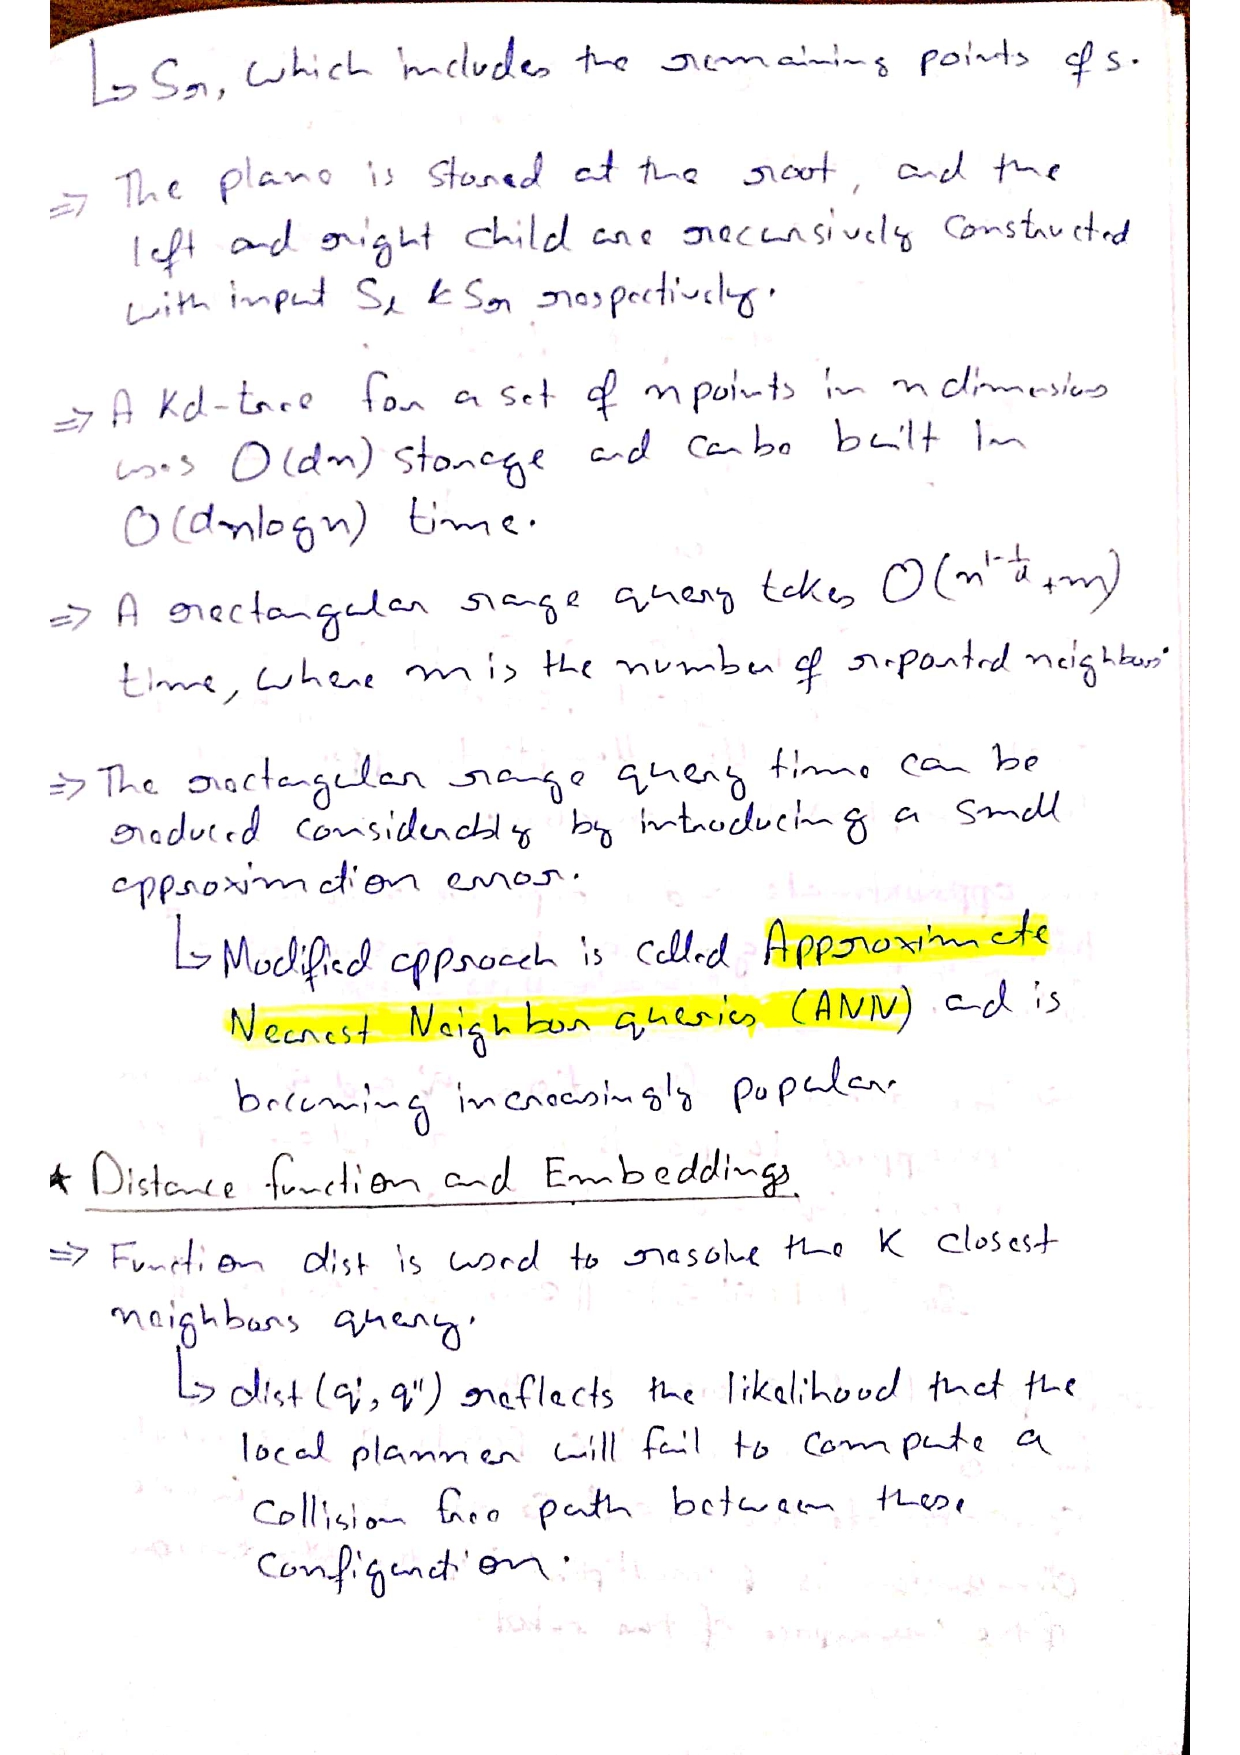 ↳ Sr, which includes the remaining points of S.
⇒ The plane is stored at the root, and the
left and right child are recursively constructed
with input Sl & Sr respectively.
⇒ A Kd-tree for a set of n points in n dimensions
uses O(dn) storage and can be built in
O(dnlogn) time.
⇒ A rectangular range query takes O(n^{1-1/d}+m)
time, where m is the number of reported neighbors.
⇒ The rectangular range query time can be
reduced considerably by introducing a small
approximation error.
↳ Modified approach is called Approximate
Nearest Neighbor queries (ANN) and is
becoming increasingly popular.
* Distance function and Embeddings.
⇒ Function dist is used to resolve the K closest
neighbors query.
↳ dist(q', q") reflects the likelihood that the
local planner will fail to compute a
collision free path between these
configuration.